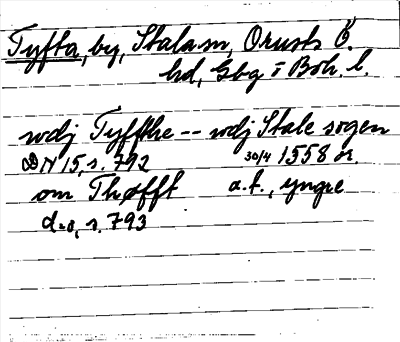 Tyfta, by, Stala sn, Orusts Ö.
hd, Gbg o Boh. l.
wdj Tyffthe -- wdj Stale sogen
DN 15, s. 792 30/4 1558 or.
om Thøfft a.f., yngre
d:o, s. 793